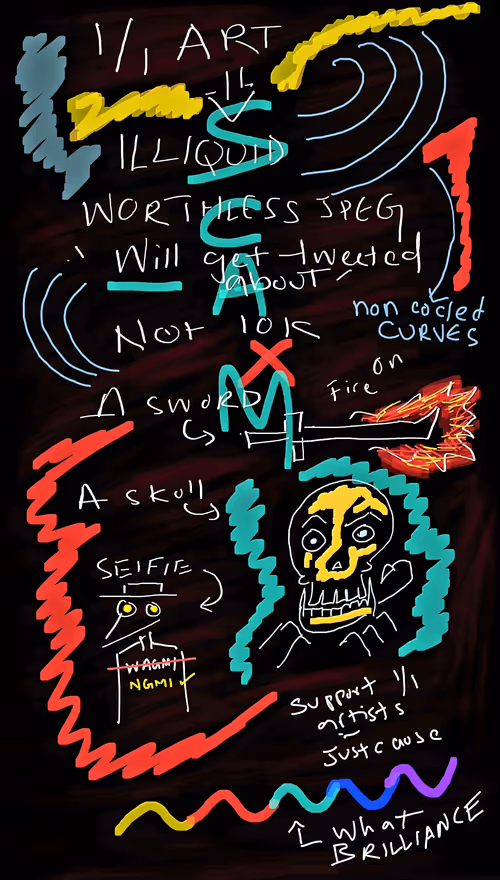 1/1 ART
ILLIQUID
SCAM
WORTHLESS JPEG
Will get tweeted
about
non cocled
CURVES
Not 10K
A SWORD
on
Fire
A skull
SElFIE
WAGMI
NGMI
Support 1/1
artists
Just cause
what
BRILLIANCE